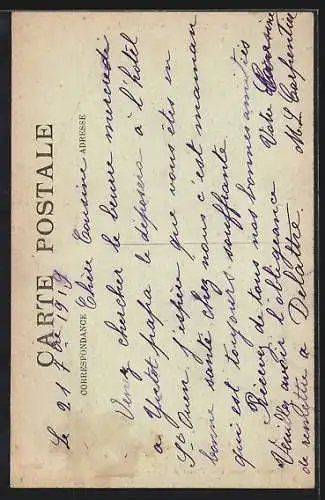 CARTE POSTALE
CORRESPONDANCE
ADRESSE
Le 21 7bre 1919
Chère Cousine
Venez chercher le beurre mercredi
a Yvetot papa le déposera à l'hôtel
St Ouen j'espère que vous êtes en
bonne santé chez nous c'est maman
qui est toujours souffrante.
Recevez de tous nos bonnes amitiés
Votre Cousine
M L Carpentier
Veuillez avoir l'obligeance
de remettre a Delattre